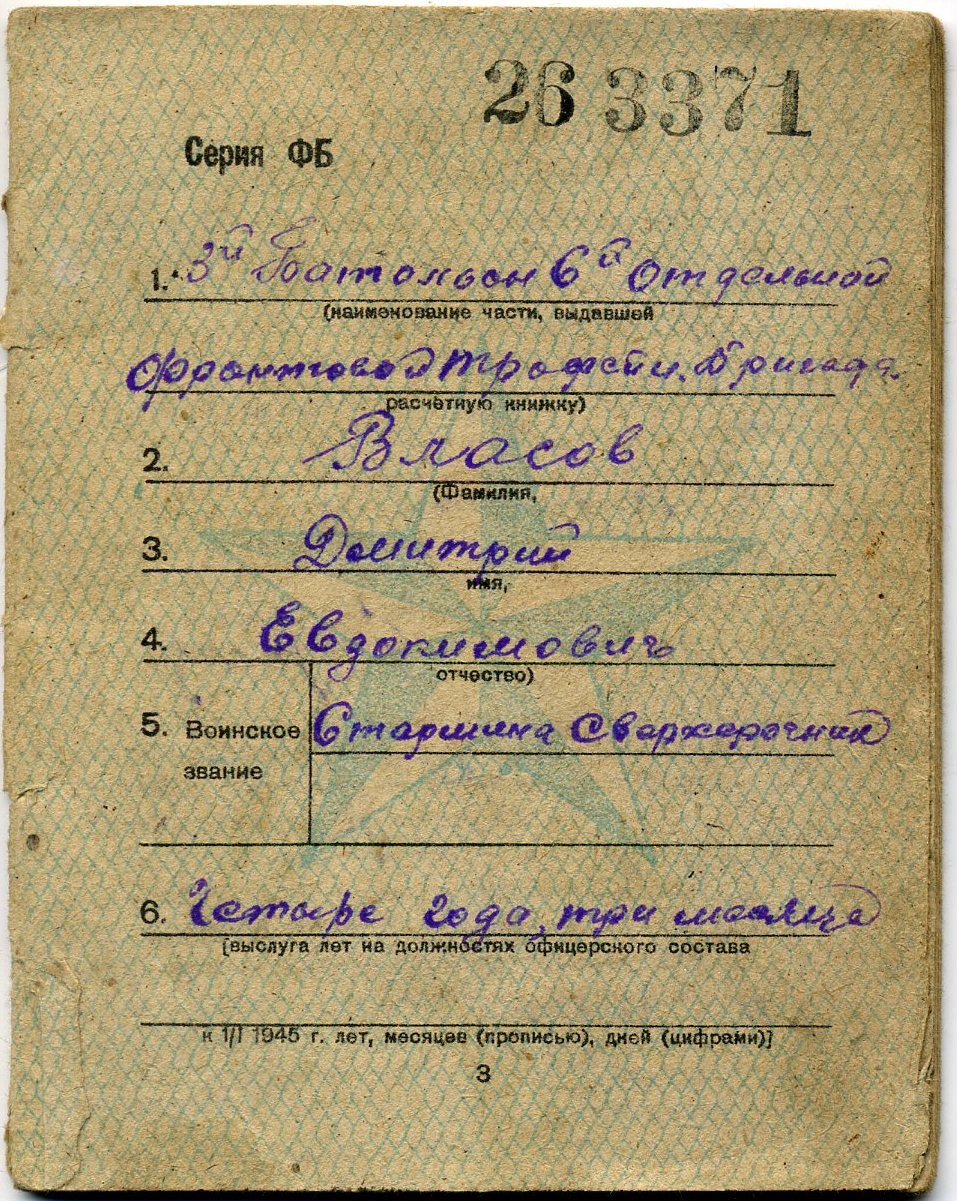 26 3371
Серия ФБ
1. 3й Батольон 6й Отдельной
(наименование части, выдавшей
фронтовой трофейн. Бригада.
расчётную книжку)
2. Власов
(Фамилия,
3. Дмитрий
имя,
4. Евдокимович
отчество)
5. Воинское Старшина Сверхсрочник
звание
6. Четыре года, три месяца
[выслуга лет на должностях офицерского состава
к 1/I 1945 г. лет, месяцев (прописью), дней (цифрами)]
3